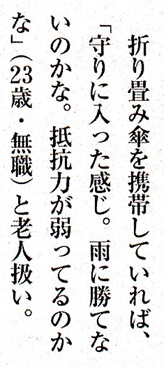 折り畳み傘を携帯していれば、
「守りに入った感じ。雨に勝てな
いのかな。抵抗力が弱ってるのか
な」（23歳・無職）と老人扱い。